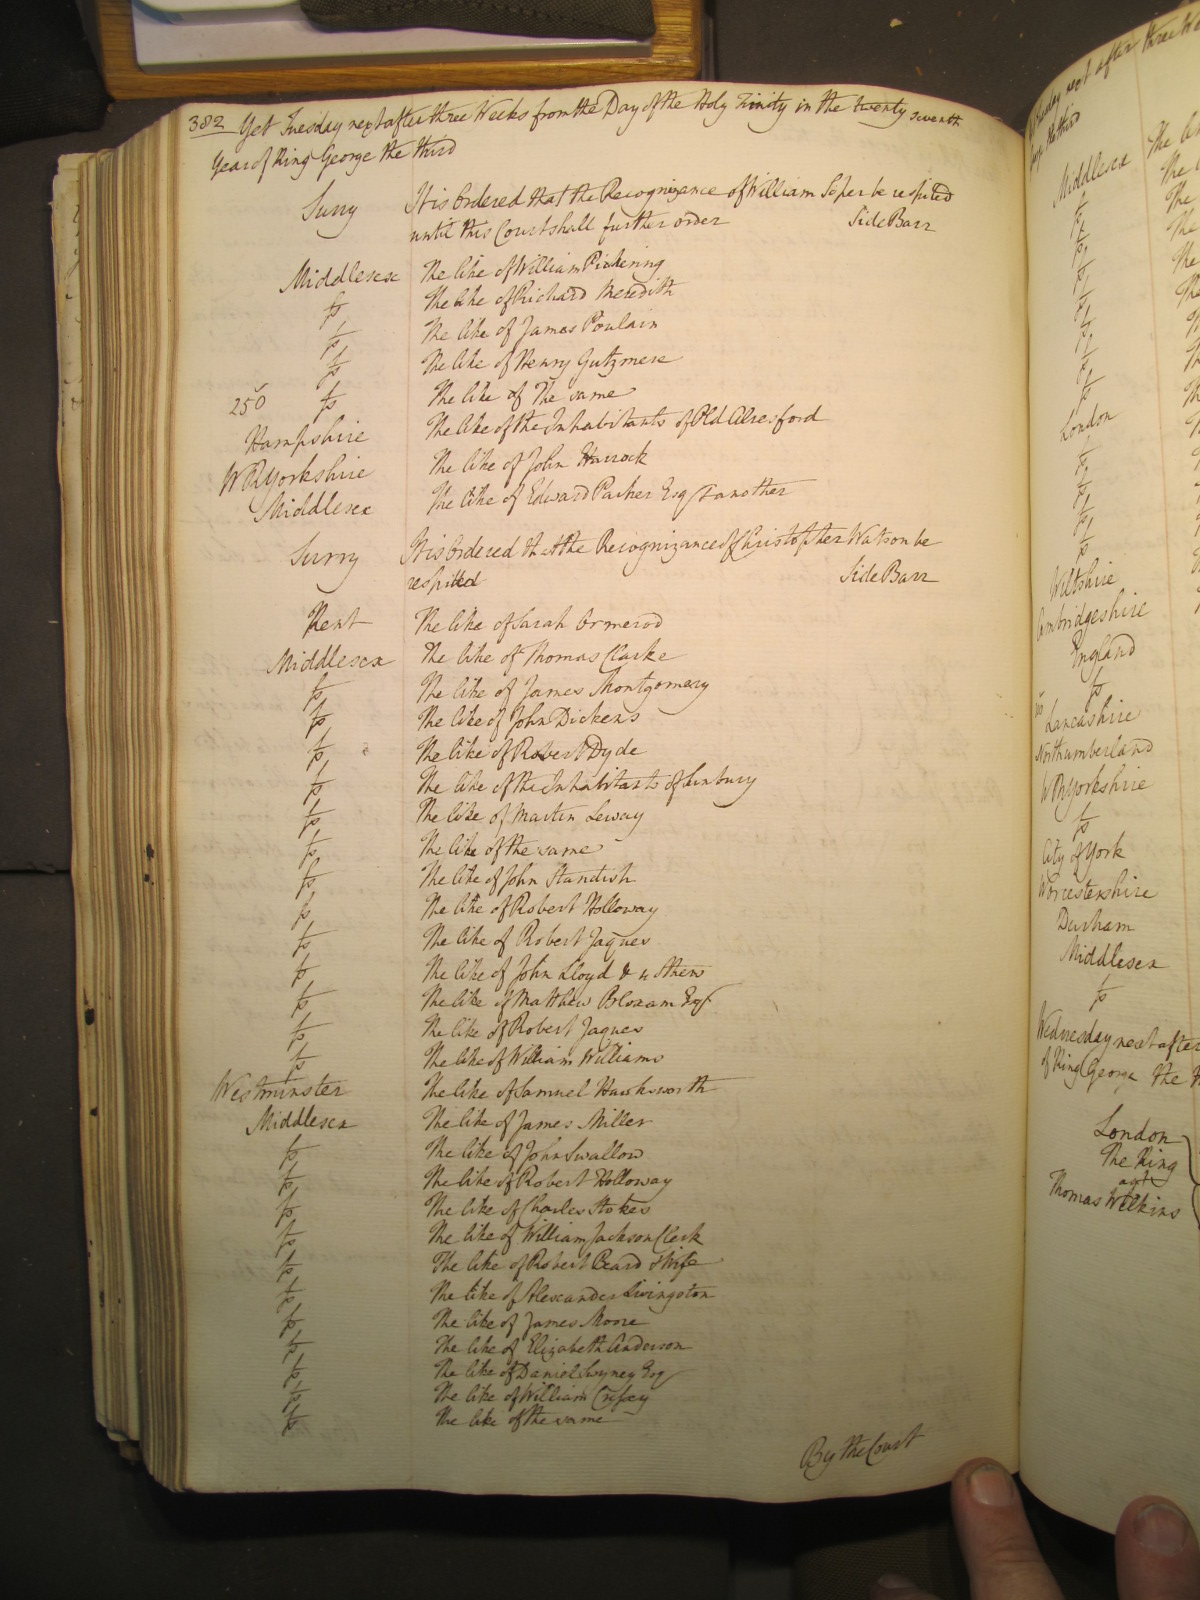 382 Yet Tuesday next after three Weeks from the Day of the Holy Trinity in the twenty seventh
Year of King George the third
Surry It is Ordered that the Recognizance of William Soper be respited
until this Court shall further order Side Barr
Middlesex The like of William Pickering
fs The like of Richard Meredith
fs The like of James Poulain
fs The like of Henry Gutzmere
250 fs The like of The same
Hampshire The like of the Inhabitants of Old Alresford
W R Yorkshire The like of John Harrock
Middlesex The like of Edward Parker Esq & another
Surry It is Ordered that the Recognizance of Christopher Watson be
respited Side Barr
Kent The like of Sarah Ormerod
Middlesex The like of Thomas Clarke
fs The like of James Montgomery
fs The like of John Dickens
fs The like of Robert Dyde
fs The like of the Inhabitants of Sunbury
fs The like of Martin Leway
fs The like of the same
fs The like of John Standish
fs The like of Robert Holloway
fs The like of Robert Jaques
fs The like of John Lloyd & 4 others
fs The like of Matthew Bloxam Esqr
fs The like of Robert Jaques
fs The like of William Williams
Westminster The like of Samuel Hawksworth
Middlesex The like of James Miller
fs The like of John Swallow
fs The like of Robert Holloway
fs The like of Charles Stokes
fs The like of William Jackson Clerk
fs The like of Robert Beard & Wife
fs The like of Alexander Livingston
fs The like of James Moore
fs The like of Elizabeth Anderson
fs The like of Daniel Swyney Esq
fs The like of William
fs The like of the same
By the Court
next after three
George the third
Middlesex The
fs The
fs The
fs The
fs The
fs
fs
fs
London
fs
fs
fs
fs
Wiltshire
Cambridgeshire
England
fs
Lancashire
Northumberland
W R Yorkshire
fs
City of York
Worcestershire
Durham
Middlesex
fs
Wednesday next after
of King George the
London
The King
agt
Thomas Wilkins